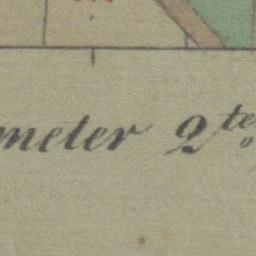 meter 2te